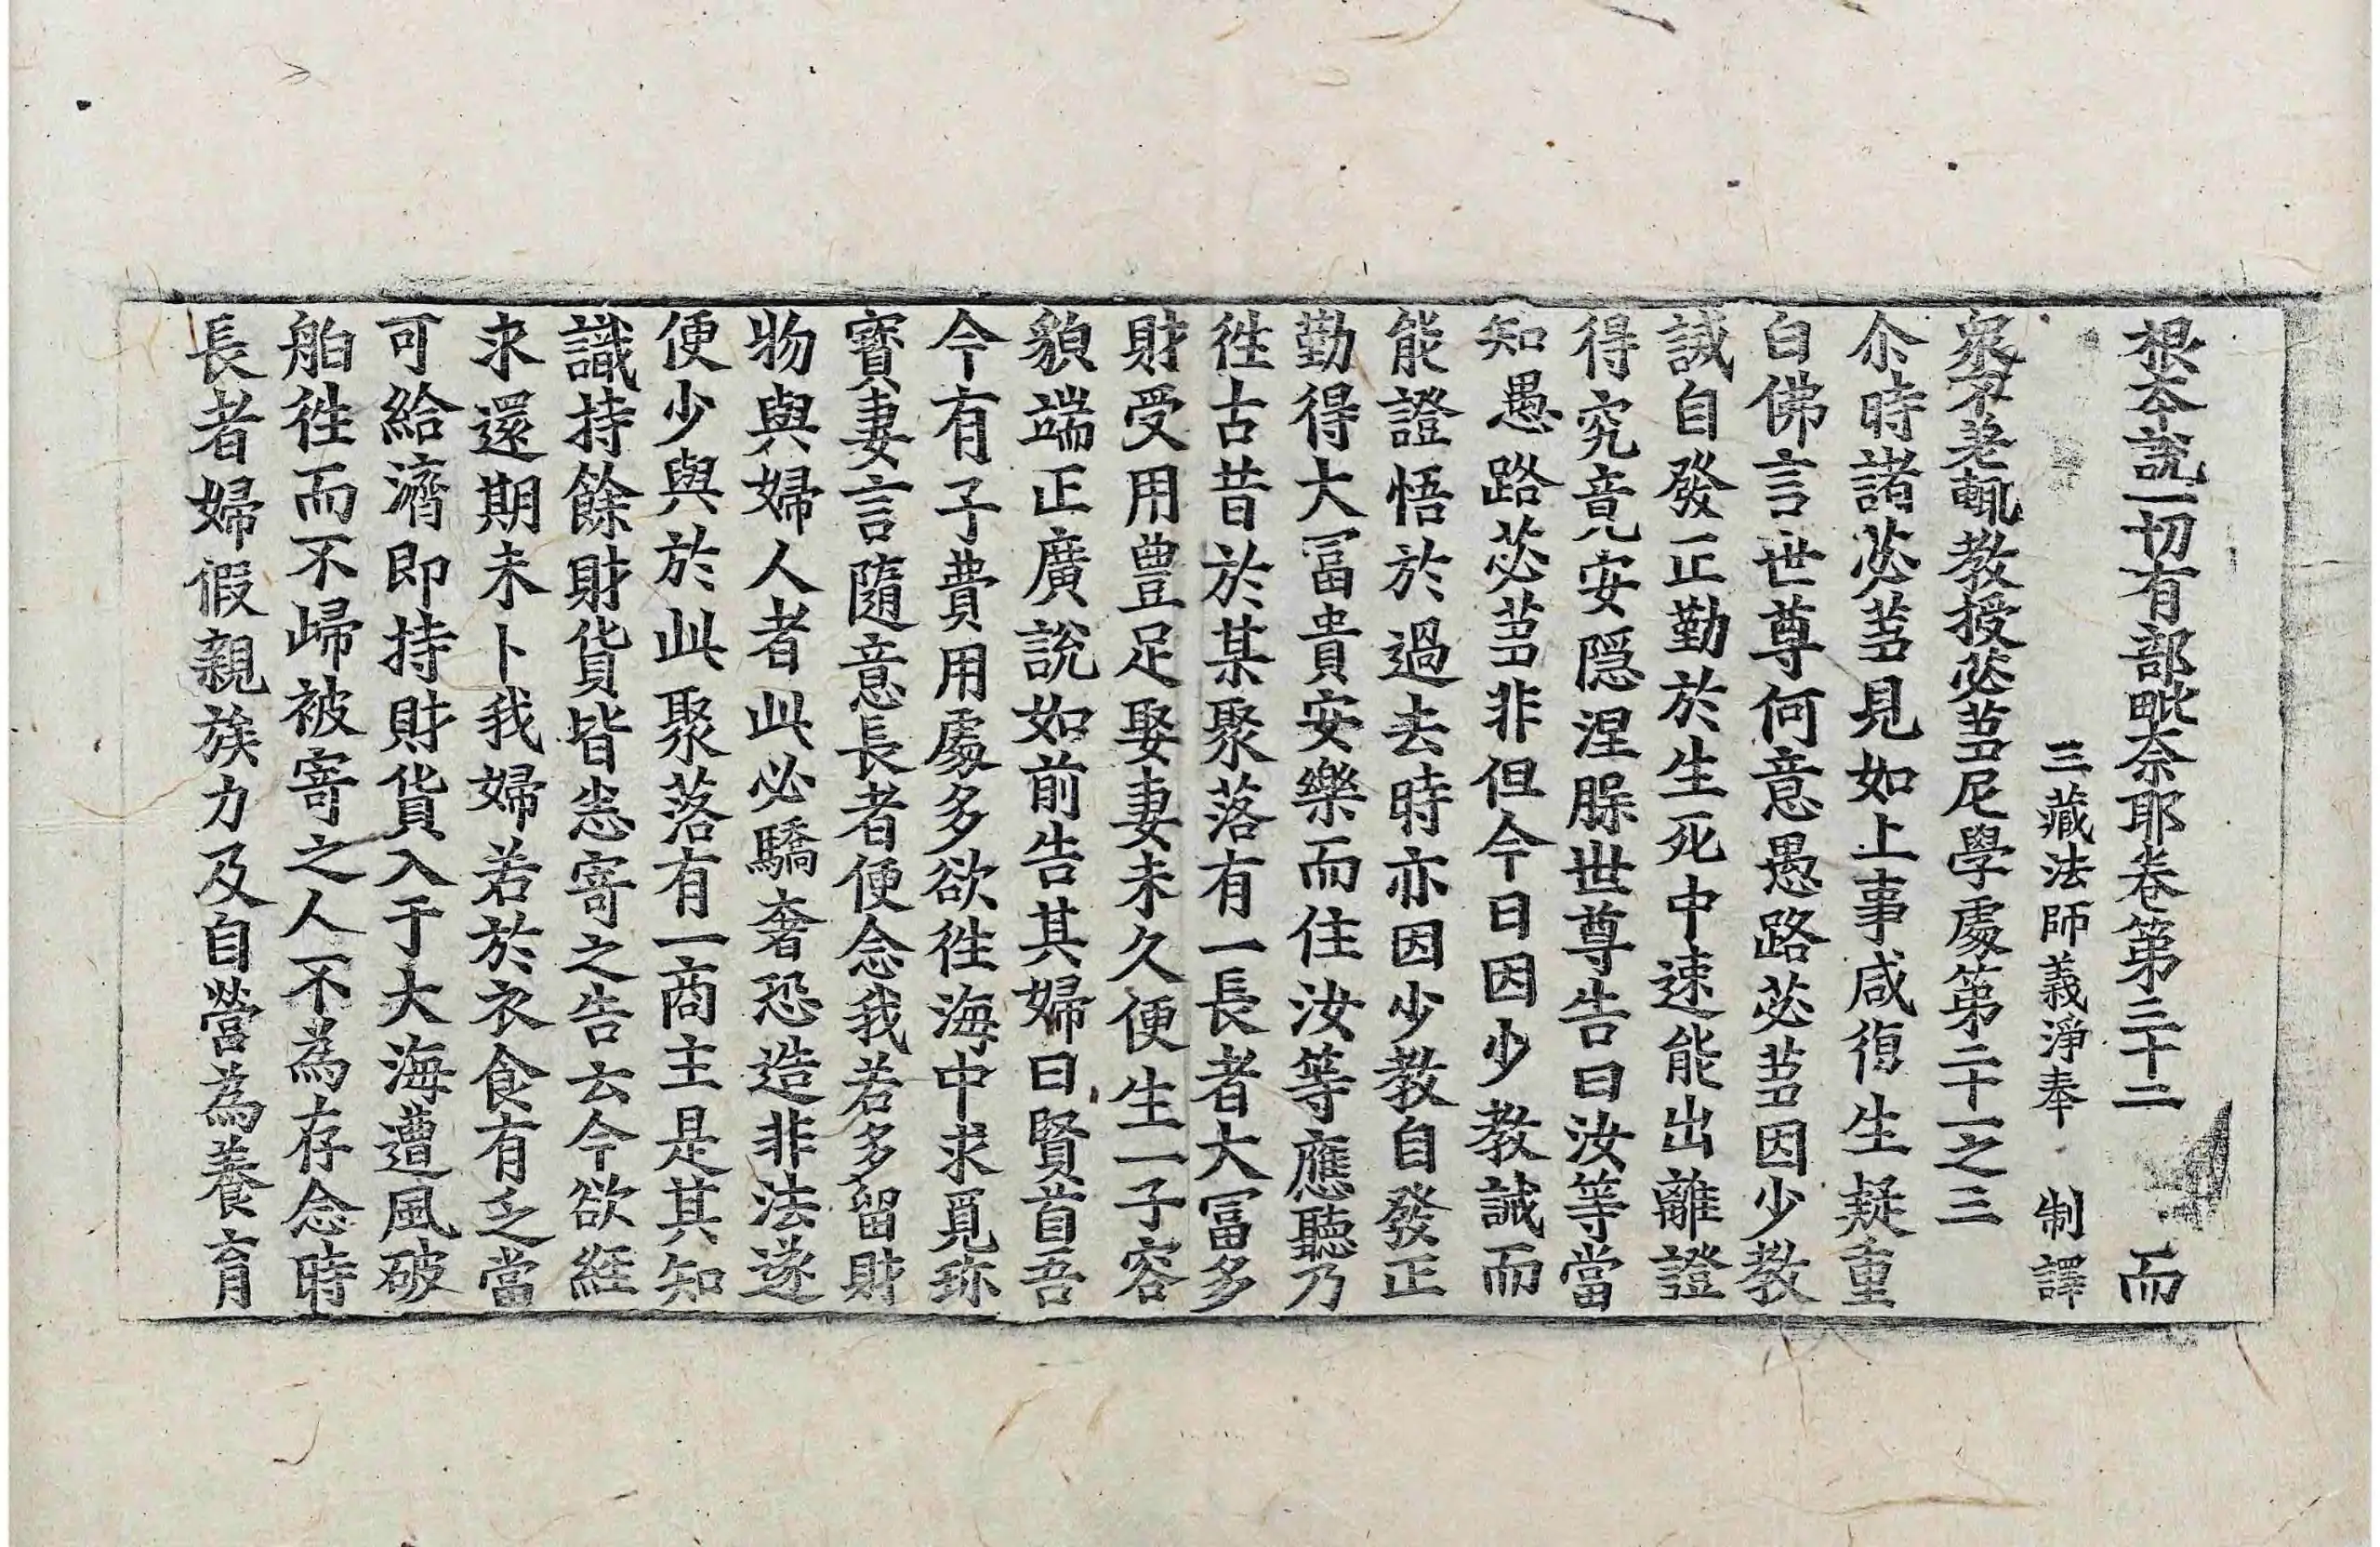 根本說一切有部毗奈耶卷第三十二 而
三藏法師義淨奉 制譯
衆不差輒教授苾芻尼學處第二十一之三
尒時諸苾芻見如上事咸復生疑重
白佛言世尊何意愚路苾芻因少教
誡自發正勤於生死中速能出離證
得究竟安隱涅槃世尊告曰汝等當
知愚路苾芻非但今日因少教誡而
能證悟於過去時亦因少教自發正
勤得大冨貴安樂而住汝等應聽乃
徃古昔於某聚落有一長者大冨多
財受用豊足娶妻未久便生一子容
貌端正廣說如前告其婦曰賢首吾
今有子費用處多欲徃海中求覓珎
寶妻言隨意長者便念我若多留財
物與婦人者此必驕奢恐造非法遂
便少與於此聚落有一商主是其知
識持餘財貨皆悉寄之告云今欲經
求還期未卜我婦若於衣食有乏當
可給濟即持財貨入于大海遭風破
舶徃而不歸被寄之人不為存念時
長者婦假親族力及自營為養育